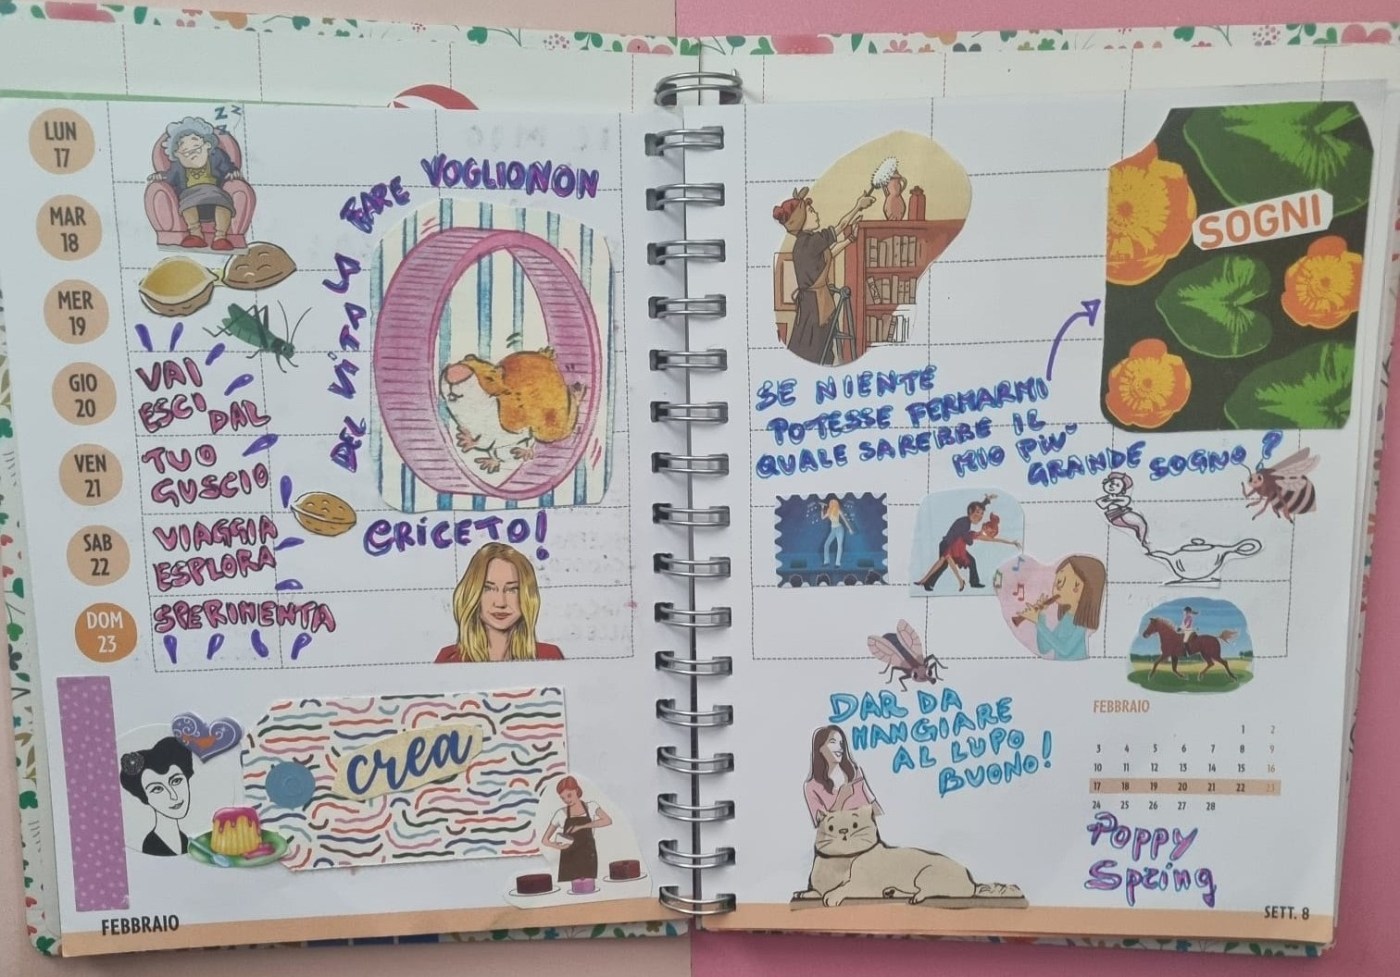 LUN
17
MAR
18
MER
19
GIO
20
VEN
21
SAB
22
DOM
23
Z Z Z
VAI
ESCI DAL
TUO
GUSCIO
VIAGGIA
ESPLORA
SPERIMENTA
NON VOGLIO
FARE
LA
VITA
DEL
CRICETO!
crea
FEBBRAIO
SOGNI
SE NIENTE
POTESSE FERMARMI
QUALE SAREBBE IL
MIO PIU'
GRANDE SOGNO?
DAR DA
MANGIARE
AL LUPO
BUONO!
FEBBRAIO
1 2
3 4 5 6 7 8 9
10 11 12 13 14 15 16
17 18 19 20 21 22 23
24 25 26 27 28
Poppy
Spring
SETT. 8